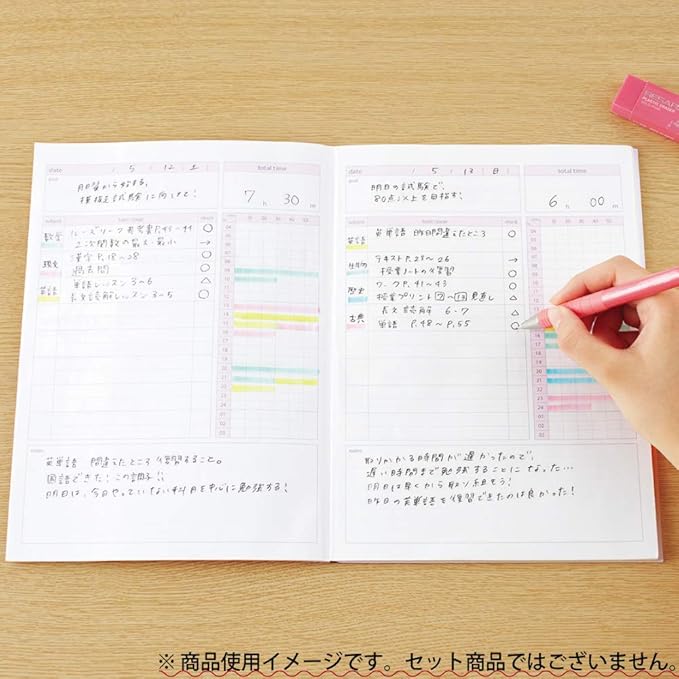 date / 5 / 12 / 土
total time
明日から始まる、
模擬定試験に向けて!
7 h 30 m
subject
task/range
check
数学
ルーズリーフ P.41~44 ○
二次関数の最大・最小 →
現文
漢字 P.18~28 ○
過去問 ○
英語
単語レッスン 3~6 △
長文読解レッスン 3~5 ○
10 20 30 40 50
04
05
06
07
08
09
10
11
12
13
14
15
16
17
18
19
20
21
22
23
24
01
02
03
notes
英単語 間違えたところ復習すること。
国語できた!この調子!!
明日は、今日やっていない科目を中心に勉強する!
date / 5 / 13 / 日
total time
goal
明日の試験で、
80点以上を目指す!
6 h 00 m
subject
task/range
check
英語
英単語 昨日間違えたところ ○
生物
テキスト P.23~26 →
授業ノートの復習 ○
歴史
ワーク P.41~43 ○
授業プリント 7~13 見直し △
古典
長文読解 6・7 △
単語 P.48~P.55 ○
10 20 30 40 50
04
05
06
07
08
09
10
11
16
17
18
19
20
21
22
23
24
01
02
03
notes
取りかかる時間が遅かったので、
遅い時間まで勉強することになった…
明日は早くから取り組もう!
昨日の英単語を復習できたのは良かった!
PLASTIC ERASER
※ 商品使用イメージです。セット商品ではございません。